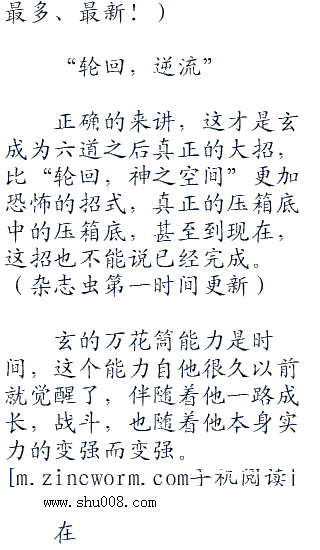 最多、最新！)
“轮回，逆流”
正确的来讲，这才是玄
成为六道之后真正的大招，
比“轮回，神之空间”更加
恐怖的招式，真正的压箱底
中的压箱底，甚至到现在，
这招也不能说已经完成。
(杂志虫第一时间更新)
玄的万花筒能力是时
间，这个能力自他很久以前
就觉醒了，伴随着他一路成
长，战斗，也随着他本身实
力的变强而变强。
[m.zincworm.com手机阅读i
www.shu008.com
在